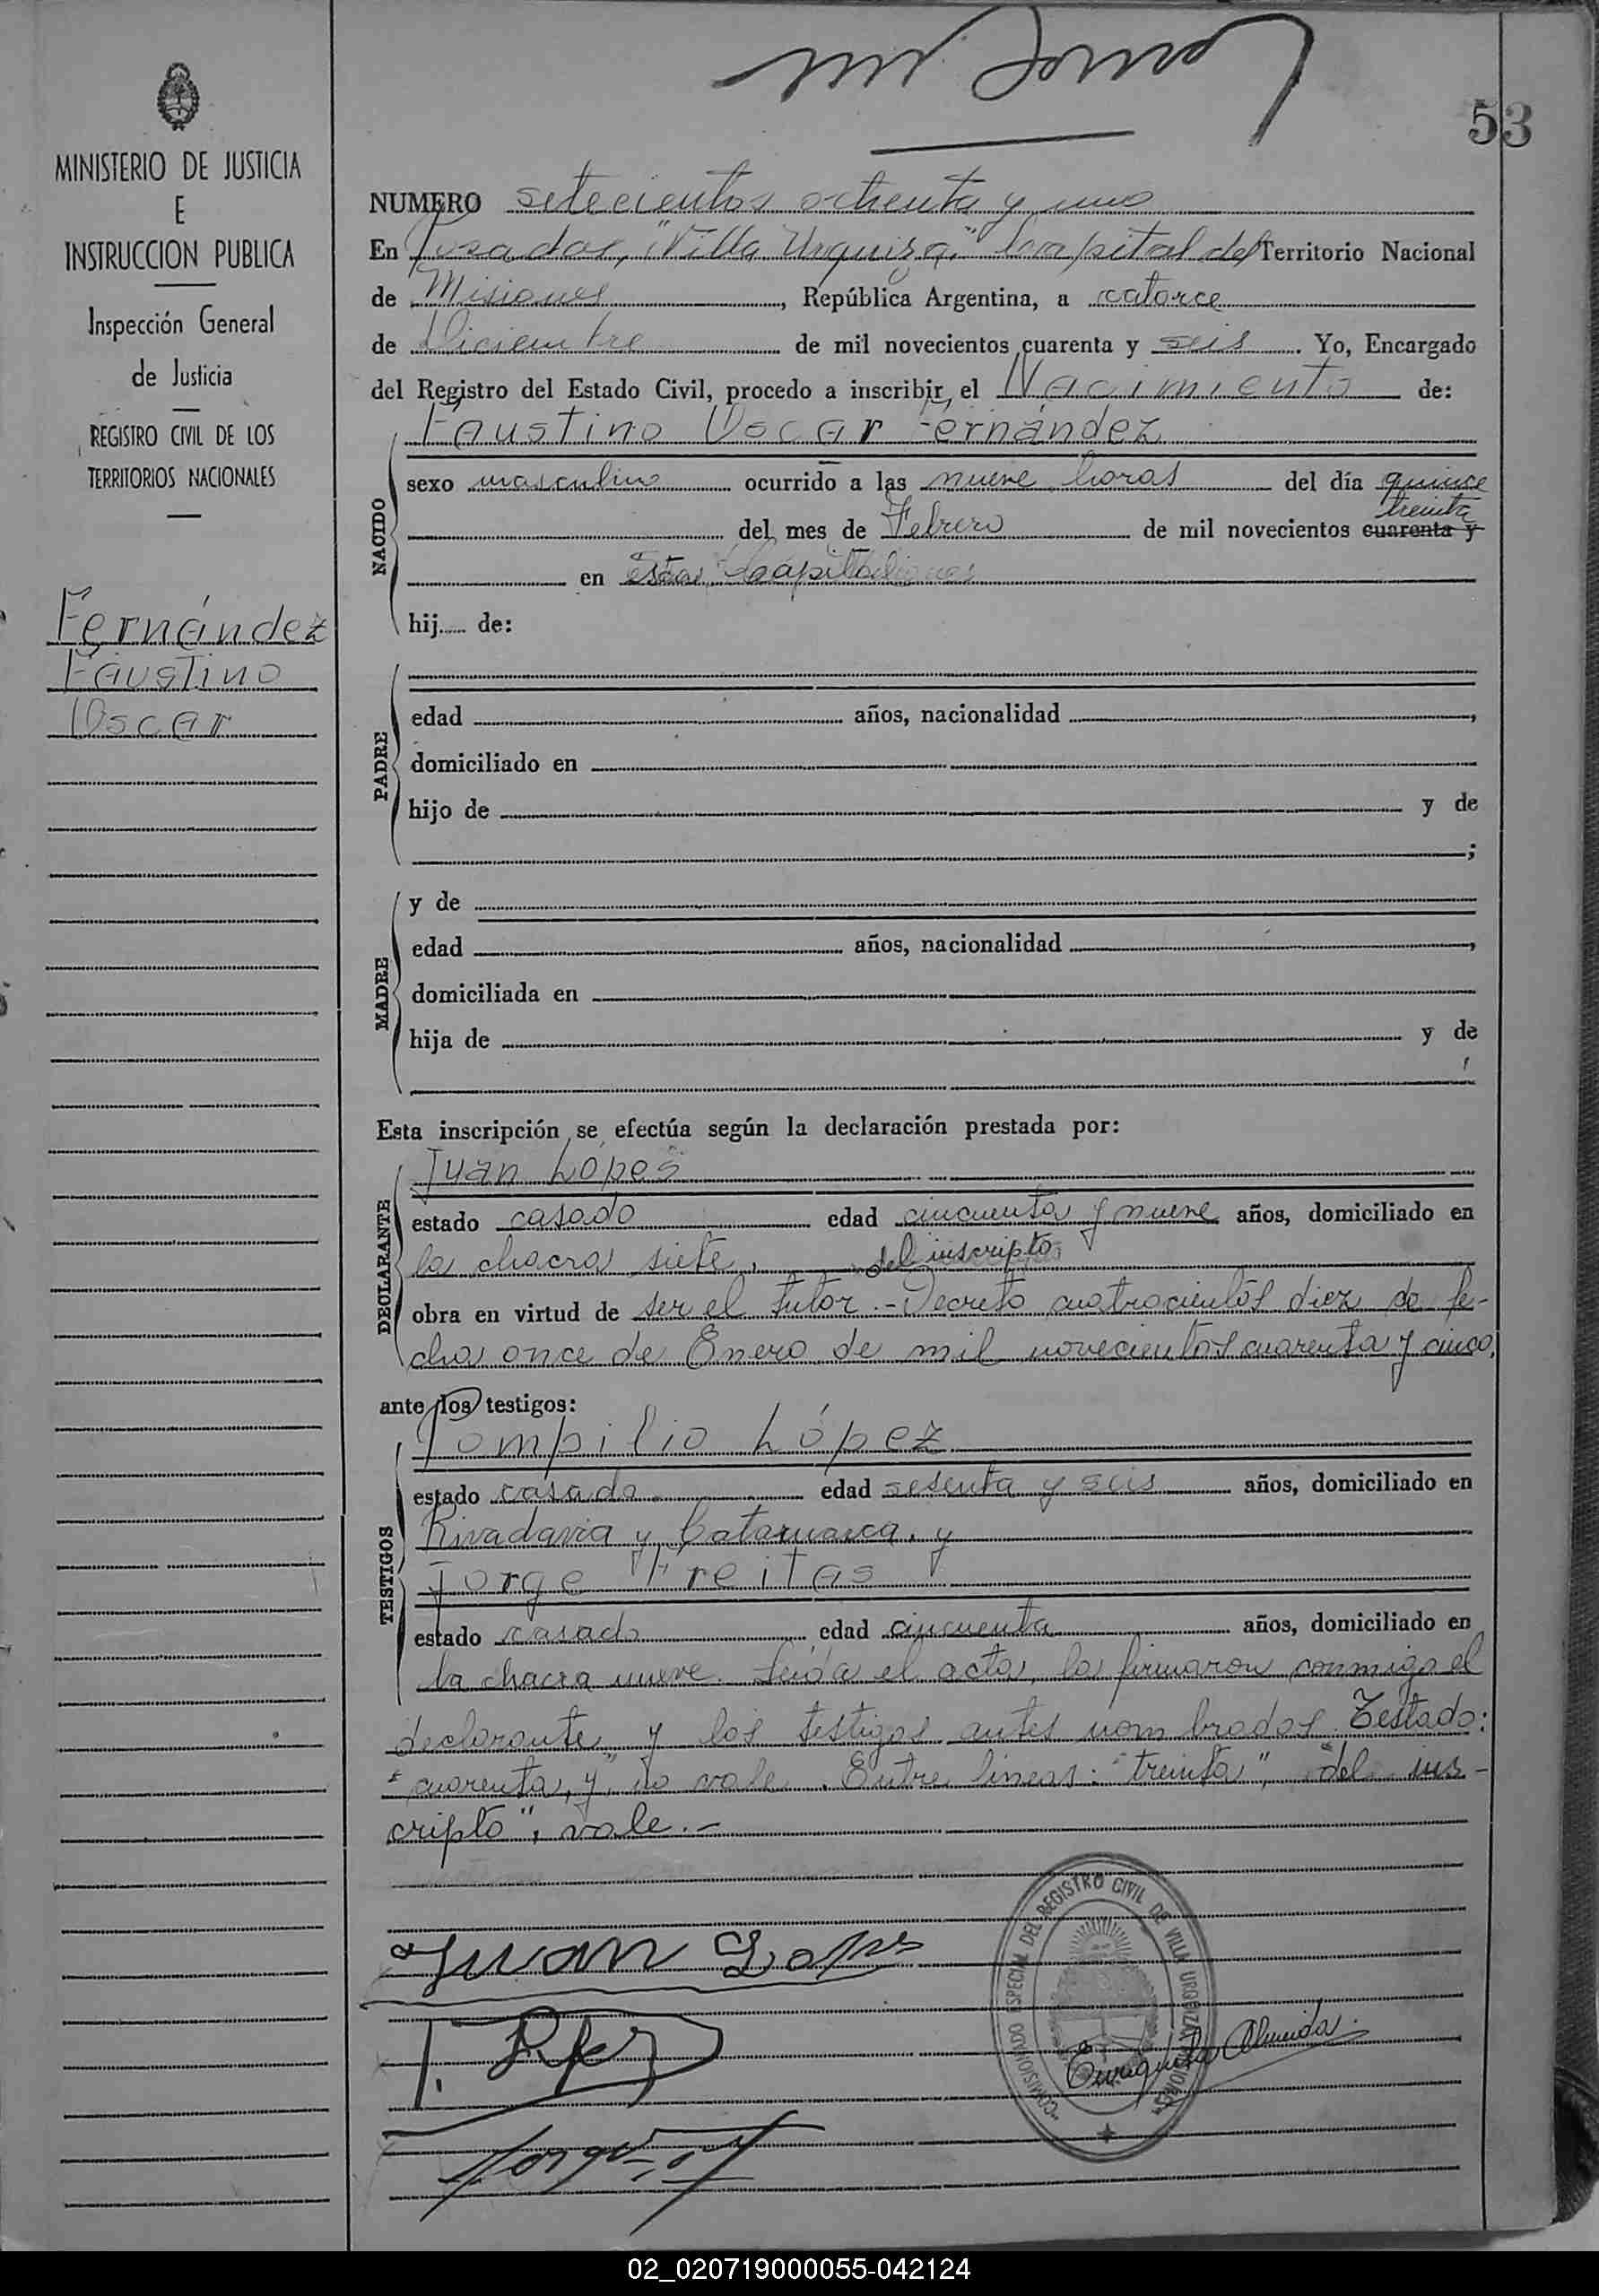 53
MINISTERIO DE JUSTICIA
E
INSTRUCCION PUBLICA
Inspección General
de Justicia
REGISTRO CIVIL DE LOS
TERRITORIOS NACIONALES
Fernández
Faustino
Oscar
NUMERO setecientos ochenta y uno
En Posadas, "Villa Urquiza" Capital del Territorio Nacional
de Misiones, República Argentina, a catorce
de Diciembre de mil novecientos cuarenta y seis. Yo, Encargado
del Registro del Estado Civil, procedo a inscribir el Nacimiento de:
Faustino Oscar Fernández
NACIDO
sexo masculino ocurrido a las nueve horas del día quince
treinta
del mes de Febrero de mil novecientos cuarenta y
en esta Capital
hij de:
PADRE
edad años, nacionalidad ,
domiciliado en
hijo de y de
;
MADRE
y de
edad años, nacionalidad ,
domiciliada en
hija de y de
Esta inscripción se efectúa según la declaración prestada por:
DECLARANTE
Juan Lopes
estado casado edad cincuenta y nueve años, domiciliado en
la chacra siete. del inscripto
obra en virtud de ser el tutor.- Decreto cuatrocientos diez de fe-
cha once de Enero de mil novecientos cuarenta y cinco,
ante los testigos:
TESTIGOS
Pompilio López
estado casado edad sesenta y seis años, domiciliado en
Rivadavia y Catamarca. y
Jorge Freitas
estado casado edad cincuenta años, domiciliado en
la chacra nueve. Leída el acta, la firmaron conmigo el
declarante y los testigos antes nombrados. Testado:
"cuarenta, y" no vale. Entre lineas: "treinta", "del ins-
cripto", vale.-
Juan Lopes
COMISIONADO ESPECIAL DEL REGISTRO CIVIL DE VILLA URQUIZA
Enriqueta Almeida
02_020719000055-042124